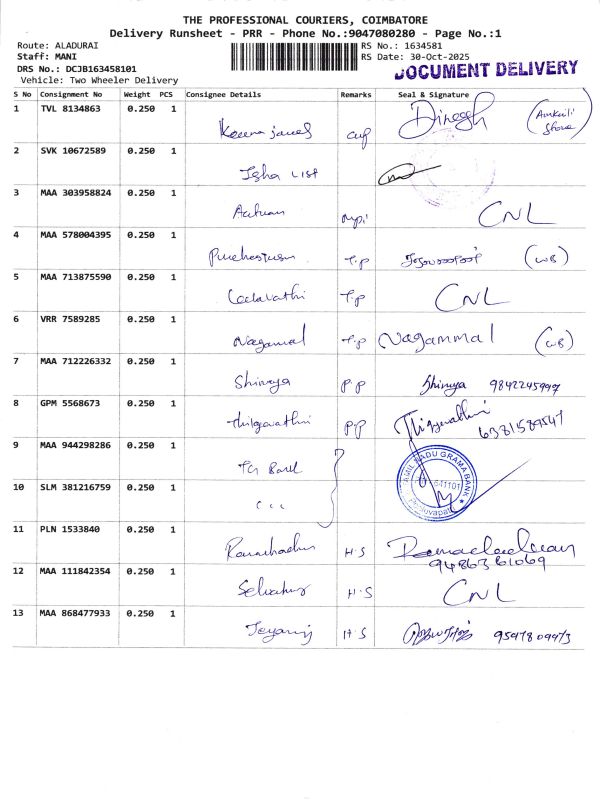 THE PROFESSIONAL COURIERS, COIMBATORE
Delivery Runsheet - PRR - Phone No.:9047080280 - Page No.:1
Route: ALADURAI RS No.: 1634581
Staff: MANI RS Date: 30-Oct-2025
DRS No.: DCJB163458101 DOCUMENT DELIVERY
Vehicle: Two Wheeler Delivery
S No Consignment No Weight PCS Consignee Details Remarks Seal & Signature
1 TVL 8134863 0.250 1 Dinesh
2 SVK 10672589 0.250 1 Isha List
3 MAA 303958824 0.250 1 CNL
4 MAA 578004395 0.250 1 T.P (WB)
5 MAA 713875590 0.250 1 T.P CNL
6 VRR 7589285 0.250 1 Nagamal T.P Nagammal (WB)
7 MAA 712226332 0.250 1 Shinya P.P Shinya 9842245997
8 GPM 5568673 0.250 1 P.P 6381589547
9 MAA 944298286 0.250 1 TAMIL NADU GRAMA BANK
10 SLM 381216759 0.250 1 641101
11 PLN 1533840 0.250 1 H.S 9486361069
12 MAA 111842354 0.250 1 H.S CNL
13 MAA 868477933 0.250 1 Jeyaraj H.S